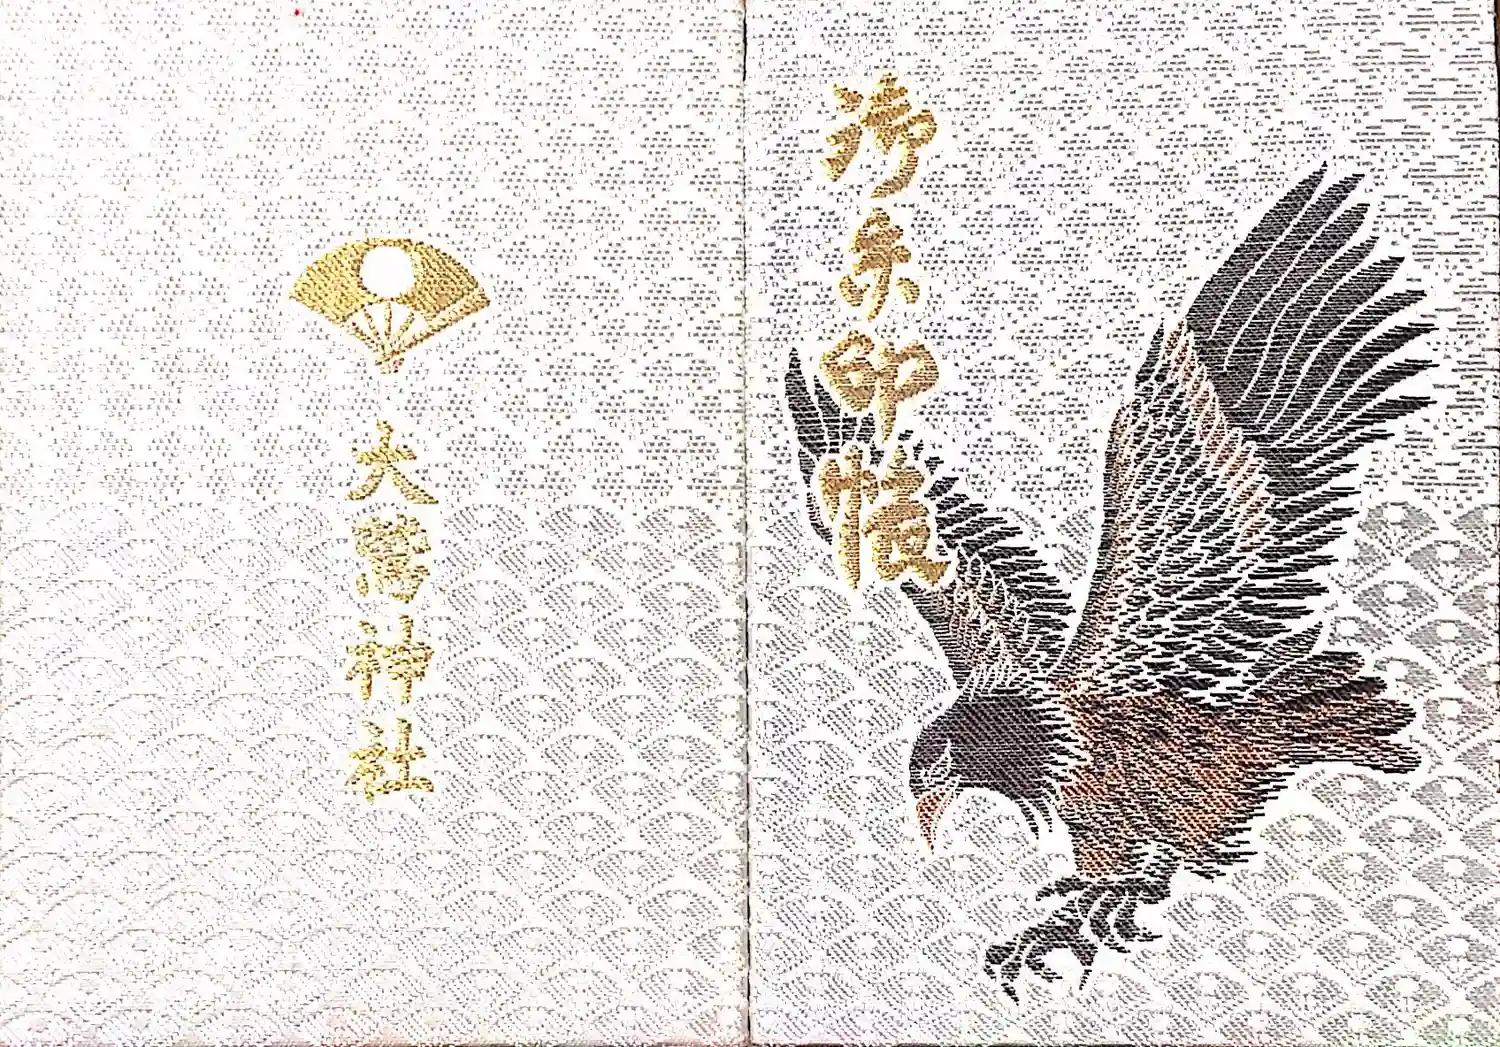 御朱印帳
大鷲神社